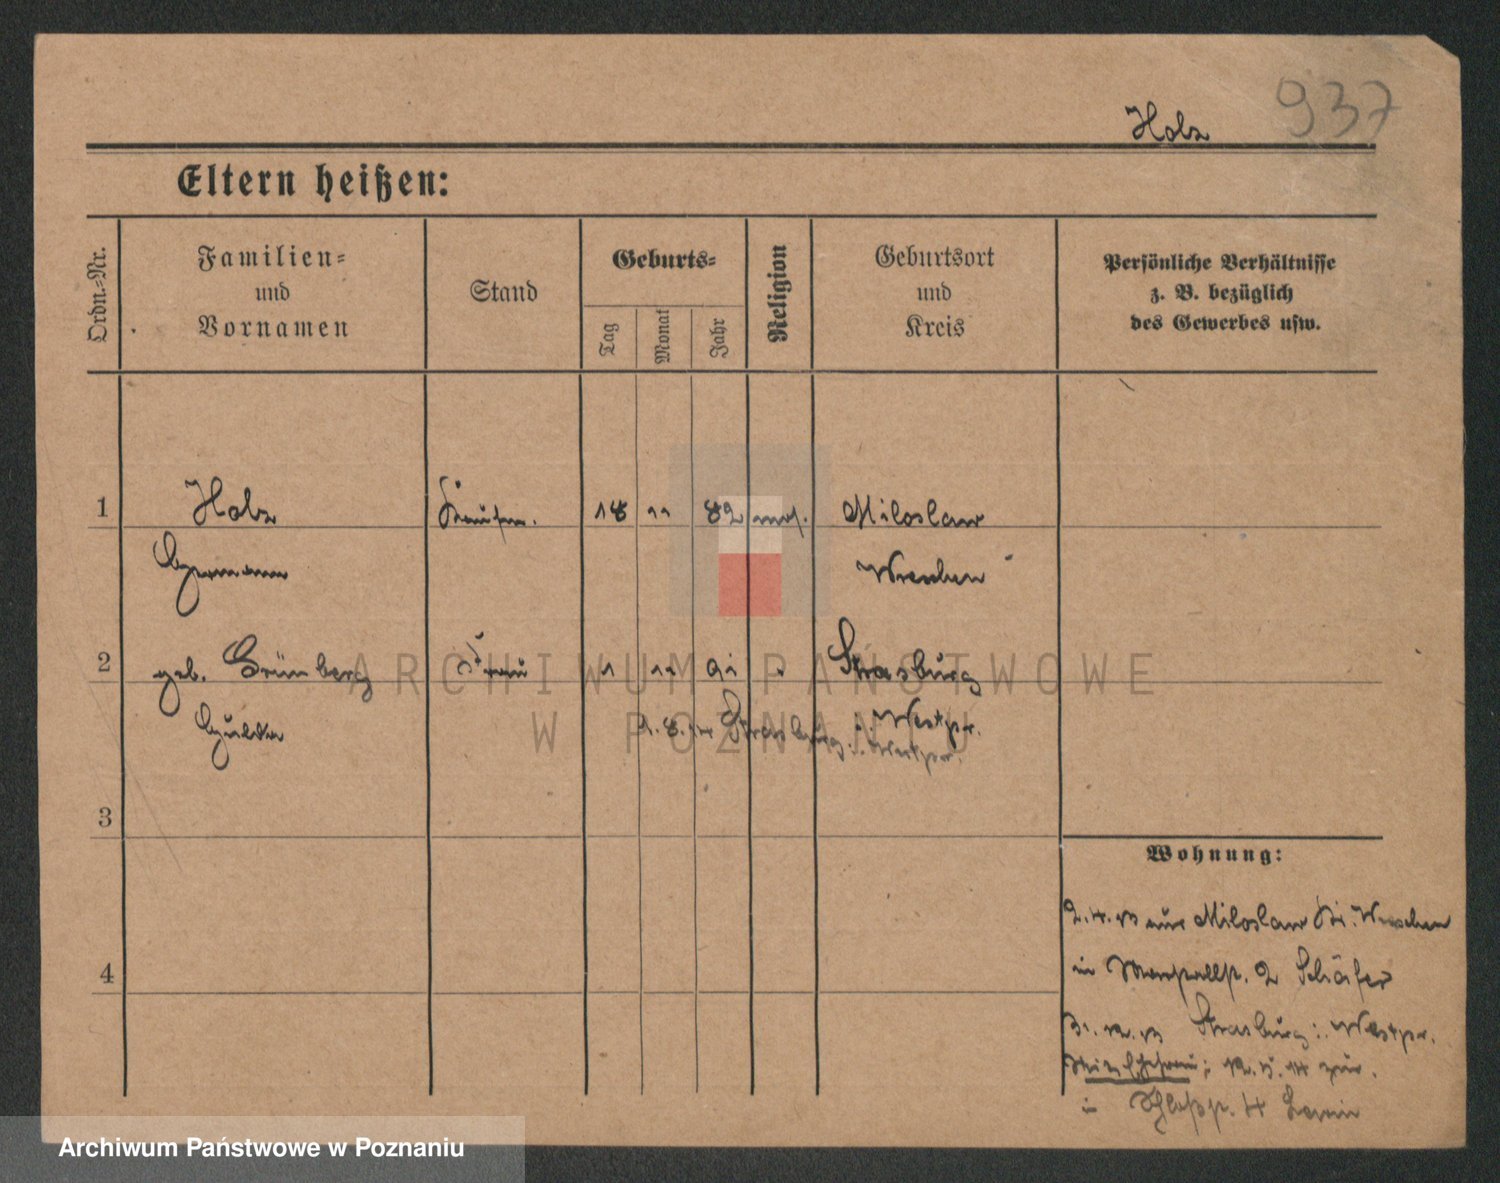 937
Holz
Eltern heißen:
Ordn.-Nr.
Familien-
und
Vornamen
Stand
Geburts-
Tag
Monat
Jahr
Religion
Geburtsort
und
Kreis
Persönliche Verhältnisse
z. B. bezüglich
des Gewerbes usw.
1 Holz Kaufm. 18 11 82 mos. Miloslaw
Hermann Wreschen
2 geb. Grünberg Frau 1 11 91 Strasburg
Hulda Westpr.
Strasburg Westpr.
3
4
Wohnung:
2.4.13 aus Miloslaw Kr. Wreschen
in 2 Schäfer
Strasburg Westpr.
in Schloßstr. 4 Lewin
ARCHIWUM PAŃSTWOWE
W POZNANIU
Archiwum Państwowe w Poznaniu